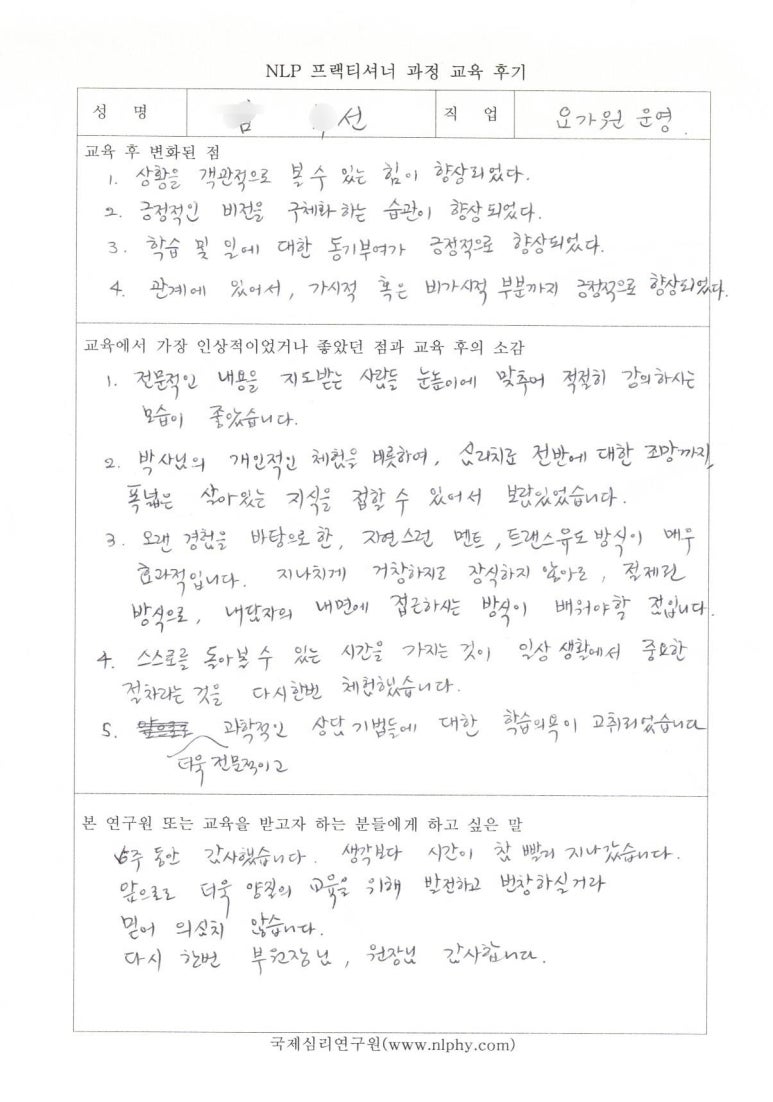 NLP 프랙티셔너 과정 교육 후기
성 명 선 직 업 요가원 운영
교육 후 변화된 점
1. 상황을 객관적으로 볼 수 있는 힘이 향상되었다.
2. 긍정적인 비전을 구체화하는 습관이 향상되었다.
3. 학습 및 일에 대한 동기부여가 긍정적으로 향상되었다.
4. 관계에 있어서, 가시적 혹은 비가시적 부분까지 긍정적으로 향상되었다.
교육에서 가장 인상적이었거나 좋았던 점과 교육 후의 소감
1. 전문적인 내용을 지도받는 사람들 눈높이에 맞추어 적절히 강의하시는
모습이 좋았습니다.
2. 박사님의 개인적인 체험을 비롯하여, 심리치료 전반에 대한 조망까지,
폭넓은 살아있는 지식을 접할 수 있어서 보람있었습니다.
3. 오랜 경험을 바탕으로 한, 자연스런 멘트, 트랜스유도 방식이 매우
효과적입니다. 지나치게 거창하지도 장식하지 않아도, 절제된
방식으로, 내담자의 내면에 접근하시는 방식이 배워야할 점입니다.
4. 스스로를 돌아볼 수 있는 시간을 가지는 것이 일상 생활에서 중요한
절차라는 것을 다시한번 체험했습니다.
5. 앞으로도 과학적인 상담기법들에 대한 학습의욕이 고취되었습니다
더욱 전문적이고
본 연구원 또는 교육을 받고자 하는 분들에게 하고 싶은 말
6주 동안 감사했습니다. 생각보다 시간이 참 빨리 지나갔습니다.
앞으로도 더욱 양질의 교육을 위해 발전하고 번창하실거라
믿어 의심치 않습니다.
다시 한번 부원장님, 원장님 감사합니다.
국제심리연구원(www.nlphy.com)